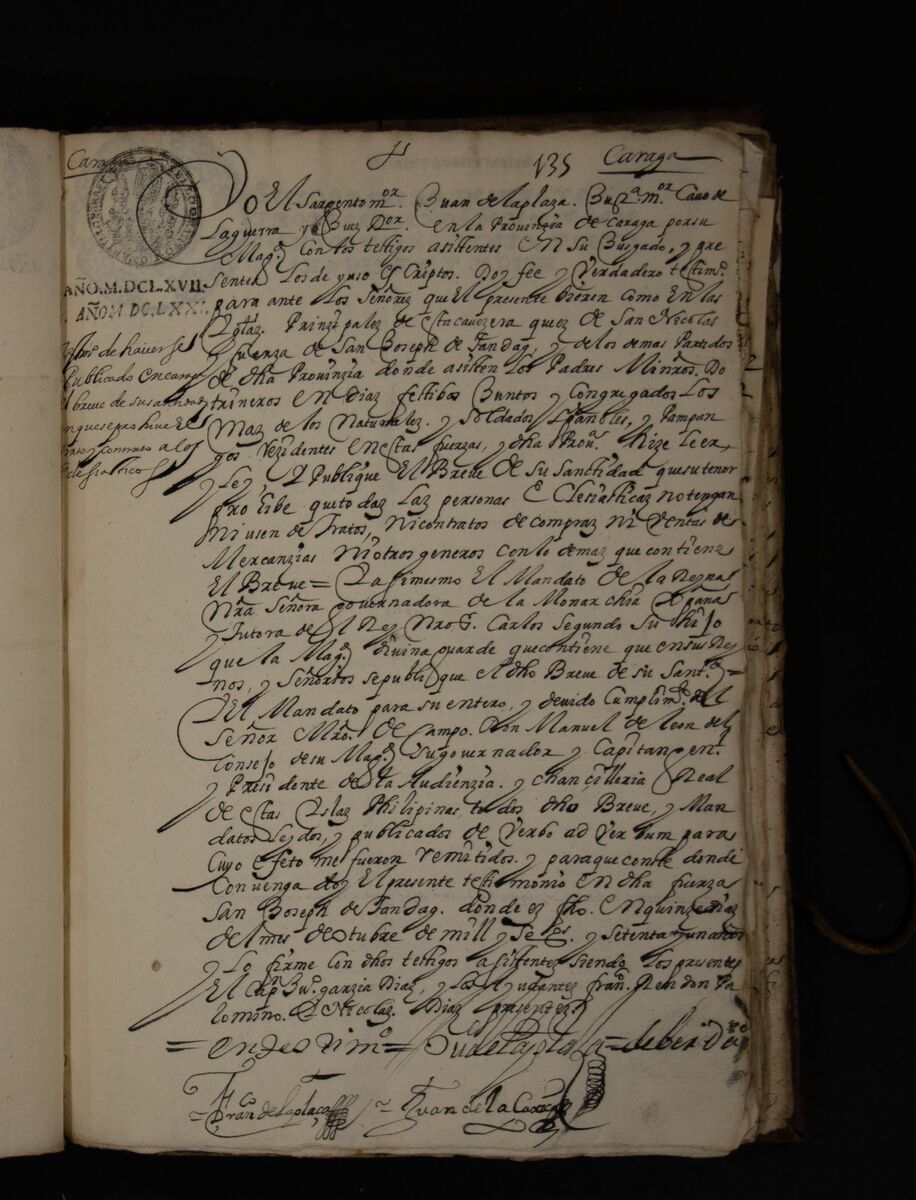 135 Caraga
Yo El Sargento m.or Juan de la plaza. Just.a m.or Cauo de
la guerra y Juez D.or en la Provincia de Caraga por su
Mag.d Con los testigos asistentes En su Jusgado, y pre
sentes Los de yuso Escriptos. Doy fee y Verdadero testim.o
para ante los Señorez que El presente bieren Como En las
Prinzipalez de esta cauezera quez de San Nicolas
fuerza de San Joseph de Tandag, y de los demas Partidos
de dha Provinzia donde asisten Los Padres Minros. Do
trineros En Diaz festibos Juntos y Congregados Los
maz de los Naturalez. y Soldados Españoles, y Pampan
gos Rezidentes En estas fuerzas, y dha Prou.a hize leer,
y Ley, y Publique El Breve De su Santidad que su tenor
proeibe que todaz Laz personas Eclesiasticaz no tengan
Ni usen de Tratos, ni contratos de compraz ni Ventas de
Mercanzias ni otros generos con lo demaz que contiene
El Breve = Y asimesmo El Mandato de la Reyna
Nra Señora governadora de la Monarchia
y Tutora de El Rey Nro S. Carlos Segundo su hijo
que la Mag.d divina guarde que contiene que en sus Rey
nos, y Señorios se publique el dho Breve de su Sant.d =
Y El Mandato para su entero, y devido Cumplim.to del
Señor Mro. De Campo. Don Manuel de leon del
Consejo de su Mag.d su governador y Capitan gen.l
y Presidente de la Audienzia. y chancilleria Real
de Estas Yslaz Philipinas, todos dho Breve, y Man
datos Leydos, y publicados de Verbo ad Verbum para
Cuyo Efeto me fueron Remitidos. y para que conste donde
Convenga doy El presente testimonio En dha fuerza
San Joseph de Tandag. donde ez fho. En quinze diaz
del mes de otubre de mill y seis.os y setenta y un años
y Lo firme Con dhos testigos asistentes siendo Los presentes
El Cap.n Ju.o garzia Diaz, y los Ayudantes fran.co Rendon Pa
lomino. Nicolaz Diaz presentez
= en testim.o = de berdad
Juan de la plaza
Fran.co de la plaça Juan de la
Cara
AÑO. M. DCLXVII.
AÑO M DCLXXI
de haverse
Publicado en caraga
el breve de su santidad
en que se prohive El
trato y contrato a los
eclesiasticos